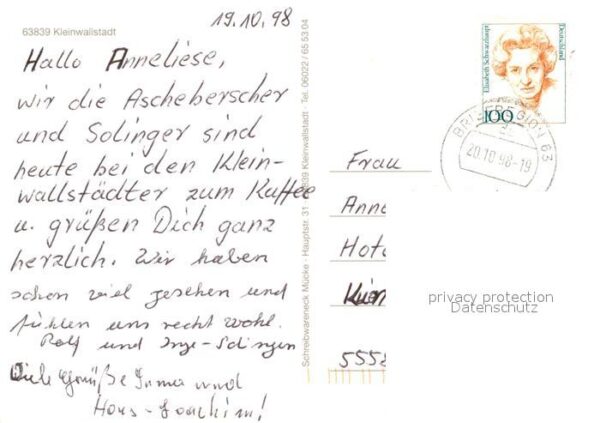 63839 Kleinwallstadt
19.10.98
Hallo Anneliese,
wir die Ascheberscher
und Solinger sind
heute bei den Klein-
wallstädter zum Kaffee
u. grüßen Dich ganz
herzlich. Wir haben
schon viel gesehen und
fühlen uns recht wohl.
Rolf und Inge - Solingen
Viele Grüße Irma und
Hans-Joachim!
Schreibwareneck Mücke - Hauptstr. 31 - 63839 Kleinwallstadt - Tel. 06022 / 65 53 04
Elisabeth Schwarzhaupt
Deutschland
100
BRIEFREGION 63
20.10.98-19
Frau
Anne
Hote
5558
privacy protection
Datenschutz